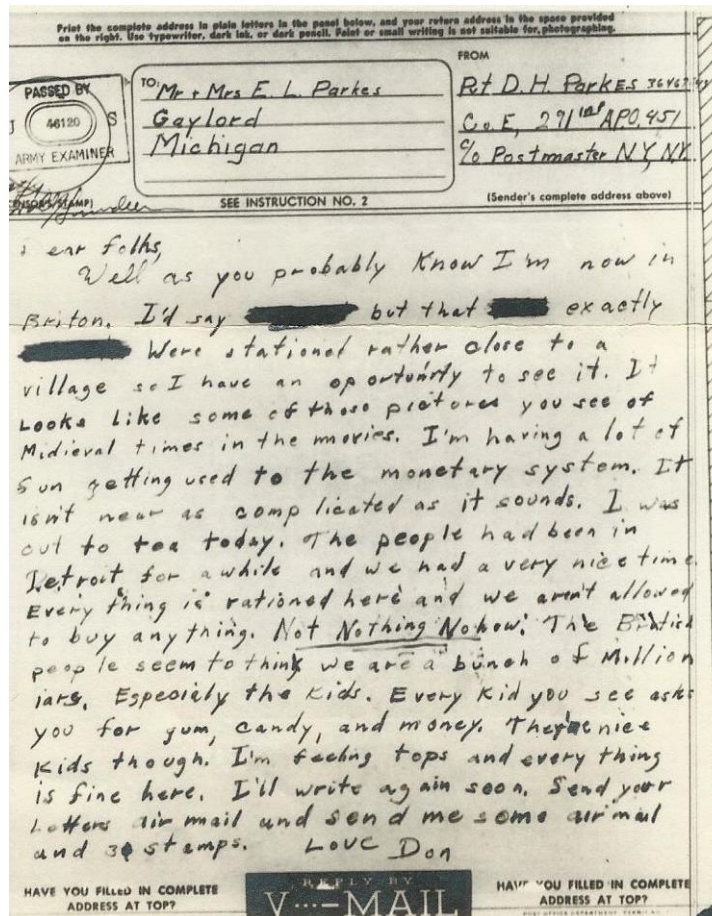 Print the complete address in plain letters in the panel below, and your return address in the space provided
on the right. Use typewriter, dark ink, or dark pencil. Faint or small writing is not suitable for photographing.
PASSED BY
U 46120 S
ARMY EXAMINER
(CENSOR'S STAMP)
TO:
Mr + Mrs E. L. Parkes
Gaylord
Michigan
SEE INSTRUCTION NO. 2
FROM
Pvt D. H. Parkes
Co E, 291 inf APO, 451
c/o Postmaster N.Y, N.Y.
(Sender's complete address above)
Dear folks,
Well as you probably Know I'm now in
Briton. I'd say but that exactly
Were stationed rather close to a
village so I have an oportunity to see it. It
Looks Like some of those pictures you see of
Midieval times in the movies. I'm having a lot of
fun getting used to the monetary system. It
isn't near as complicated as it sounds. I was
out to tea today. The people had been in
Detroit for awhile and we had a very nice time.
Every thing is rationed here and we aren't allowed
to buy anything. Not Nothing Nohow. The British
people seem to think we are a bunch of Million
iars. Especialy the Kids. Every Kid you see asks
you for gum, candy, and money. They're nice
Kids though. I'm feeling tops and every thing
is fine here. I'll write again soon. Send your
Letters air mail and send me some air mail
and 3¢ stamps. Love Don
HAVE YOU FILLED IN COMPLETE
ADDRESS AT TOP?
REPLY BY
V···–MAIL
HAVE YOU FILLED IN COMPLETE
ADDRESS AT TOP?